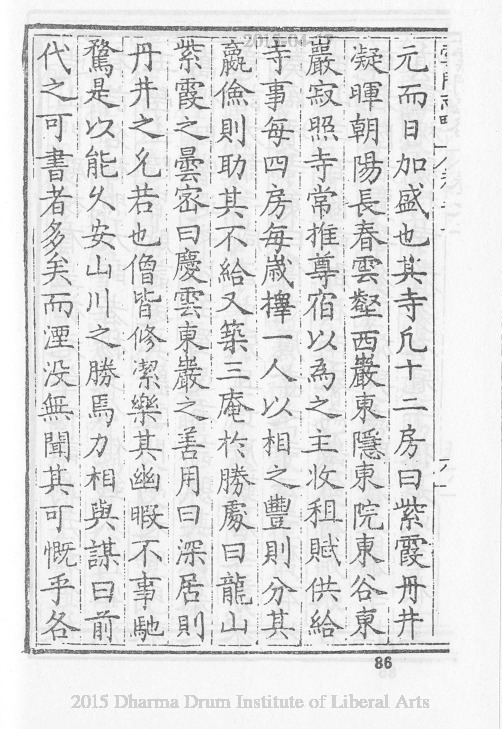 元而日加盛也其寺凡十二房曰紫霞丹井
凝暉朝陽長春雲壑西巖東隱東院東谷東
巖寂照寺常推尊宿以為之主收租賦供給
寺事每四房每嵗擇一人以相之豐則分其
贏儉則助其不給又築三庵於勝處曰龍山
紫霞之曇密曰慶雲東巖之善用曰深居則
丹井之允若也僧皆修潔樂其幽暇不事馳
騖是以能久安山川之勝焉力相與謀曰前
代之可書者多矣而湮没無聞其可慨乎各
86
2015 Dharma Drum Institute of Liberal Arts